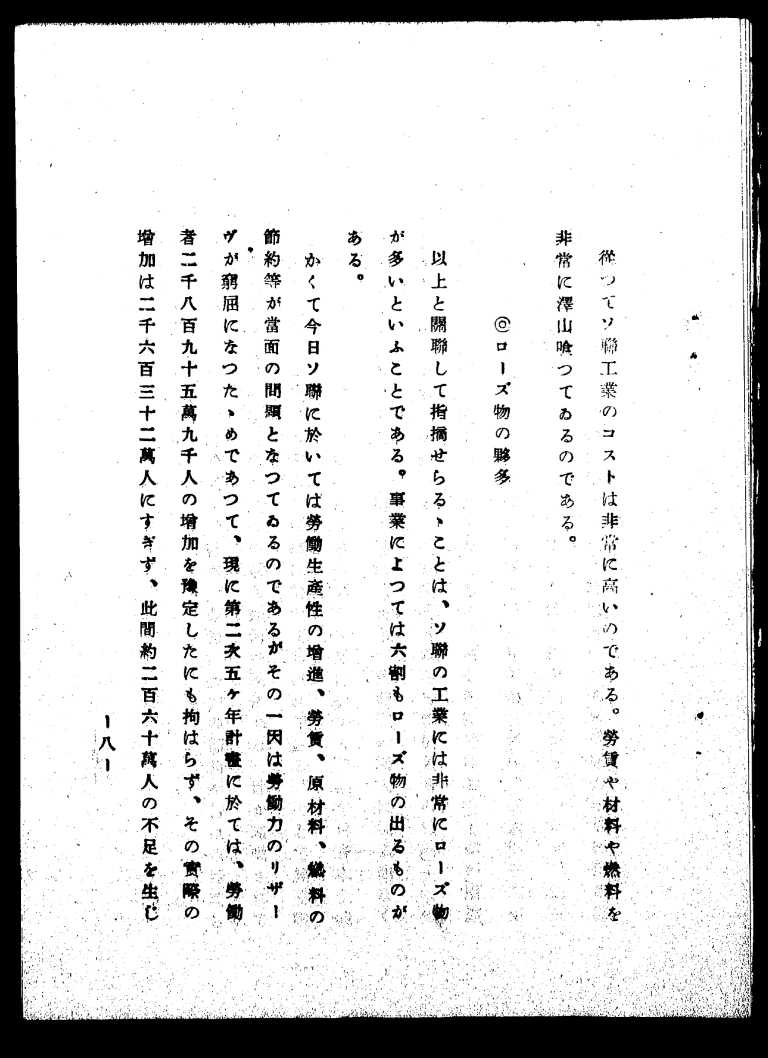 從つてソ聯工業のコストは非常に高いのである。勞賃や材料や燃料を
非常に澤山喰つてゐるのである。
◎ローズ物の夥多
以上と關聯して指摘せらるゝことは、ソ聯の工業には非常にローズ物
が多いといふことである。事業によつては六割もローズ物の出るものが
ある。
かくて今日ソ聯に於いては勞働生產性の增進、勞賃、原材料、燃料の
節約等が當面の問題となつてゐるのであるがその一因は勞働力のリザー
ヴが窮屈になつたゝめであつて、現に第二次五ヶ年計畫に於ては、勞働
者二千八百九十五萬九千人の增加を豫定したにも拘はらず、その實際の
增加は二千六百三十二萬人にすぎず、此間約二百六十萬人の不足を生じ
ー八ー